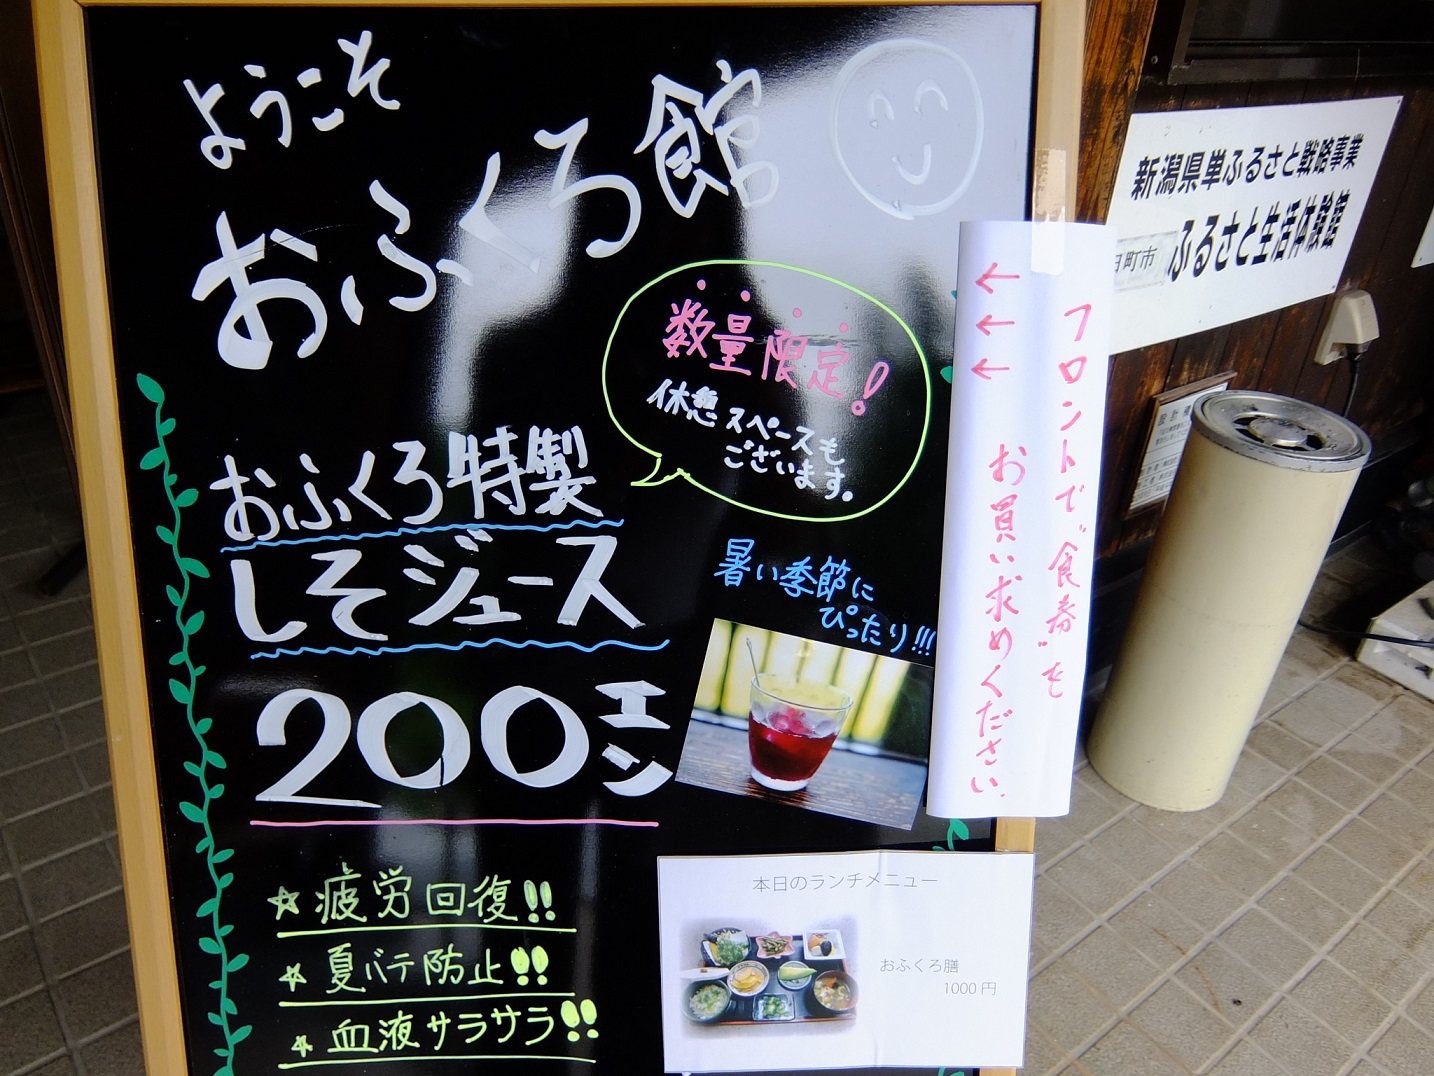 ようこそ
おふくろ館
数量限定!
休憩スペースも
ございます。
おふくろ特製
しそジュース
200エン
暑い季節に
ぴったり!!!
☆疲労回復!!
☆夏バテ防止!!
☆血液サラサラ!!
フロントで"食券"を
お買い求めください.
←←←
本日のランチメニュー
おふくろ膳
1000円
新潟県単ふるさと戦略事業
日町市 ふるさと生活体験館